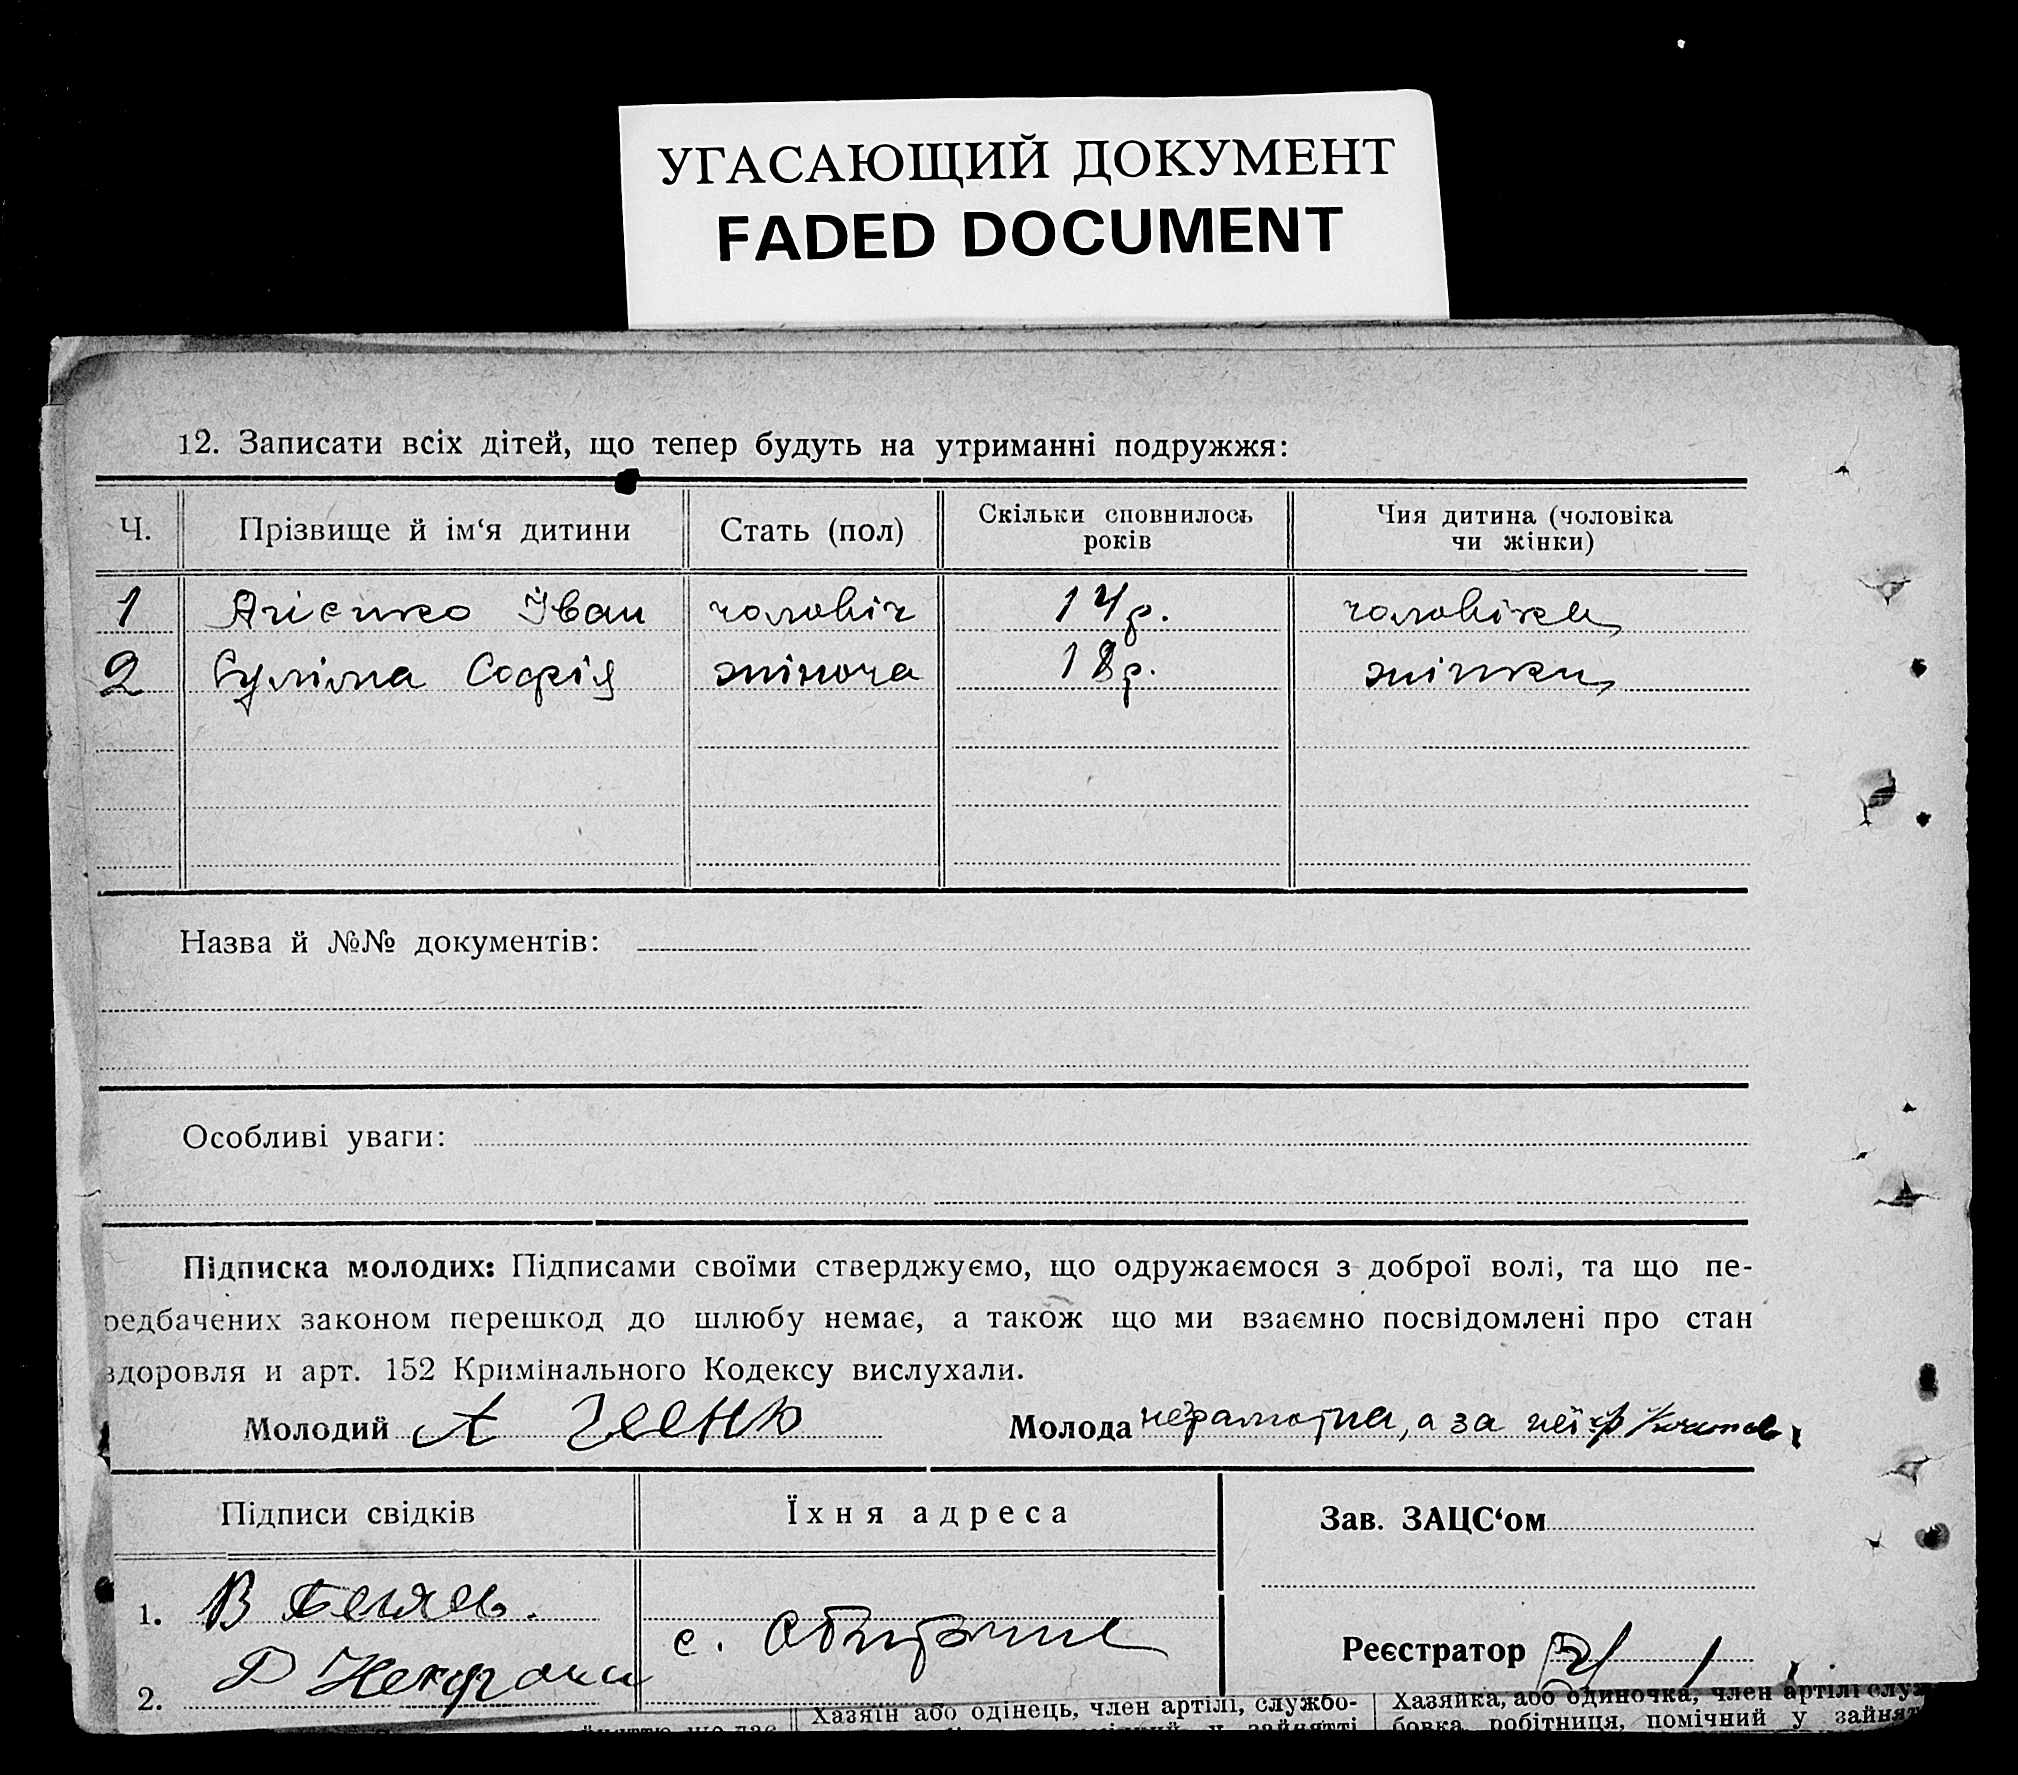 УГАСАЮЩИЙ ДОКУМЕНТ
FADED DOCUMENT
12. Записати всіх дітей, що тепер будуть на утриманні подружжя:
Ч. Прізвище й ім‘я дитини Стать (пол) Скільки сповнилось років Чия дитина (чоловіка чи жінки)
1 Агієнко Іван чоловіч 14 р. чоловіка
2 Суліма Софія жіноча 18 р. жінки
Назва й №№ документів:
Особливі уваги:
Підписка молодих: Підписами своїми стверджуємо, що одружаємося з доброї волі, та що пе-
редбачених законом перешкод до шлюбу немає, а також що ми взаємно посвідомлені про стан
здоровля и арт. 152 Кримінального Кодексу вислухали.
Молодий А Молода неграмотна, а за неї
Підписи свідків Їхня адреса Зав. ЗАЦС‘ом
1. В Беляев.
2. с.
Реєстратор
Хазяїн або одінець, член артілі, службо- Хазяйка, або одиночка, член артілі служ
у зайнятті бовка, робітниця, помічний у зайнят